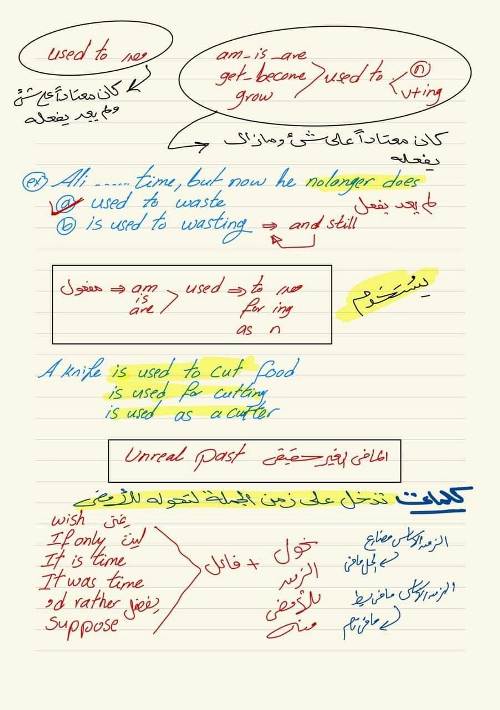 used to مصدر
كان معتاداً على شئ
ولم يعد يفعله
am_is_are
get_become
grow
used to
n
v+ing
كان معتاداً على شئ ومازال
يفعله
ex Ali ...... time, but now he nolonger does
a used to waste
لم يعد يفعل
b is used to wasting ⇒ and still
مفعول ⇒ am
is
are
used ⇒ to مصدر
for ing
as n
يُستخدم
A knife is used to cut food
is used for cutting
is used as a cutter
Unreal past الماضى الغير حقيقى
كلمات تدخل على زمن الجملة لتحوله للأمضى
wish يتمنى
If only ليت
It is time
It was time
'd rather يفضل
Suppose
+ فاعل
حول
الزمن
للأمضى
منه
الزمن الأساسى مضارع
الزمن الأساسى ماضى بسيط
ماضى تام